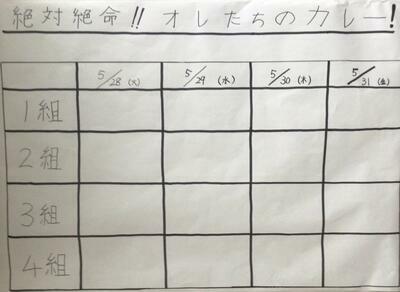 絶対絶命!! オレたちのカレー!
5/28 (火) 5/29 (水) 5/30 (木) 5/31 (金)
1組
2組
3組
4組